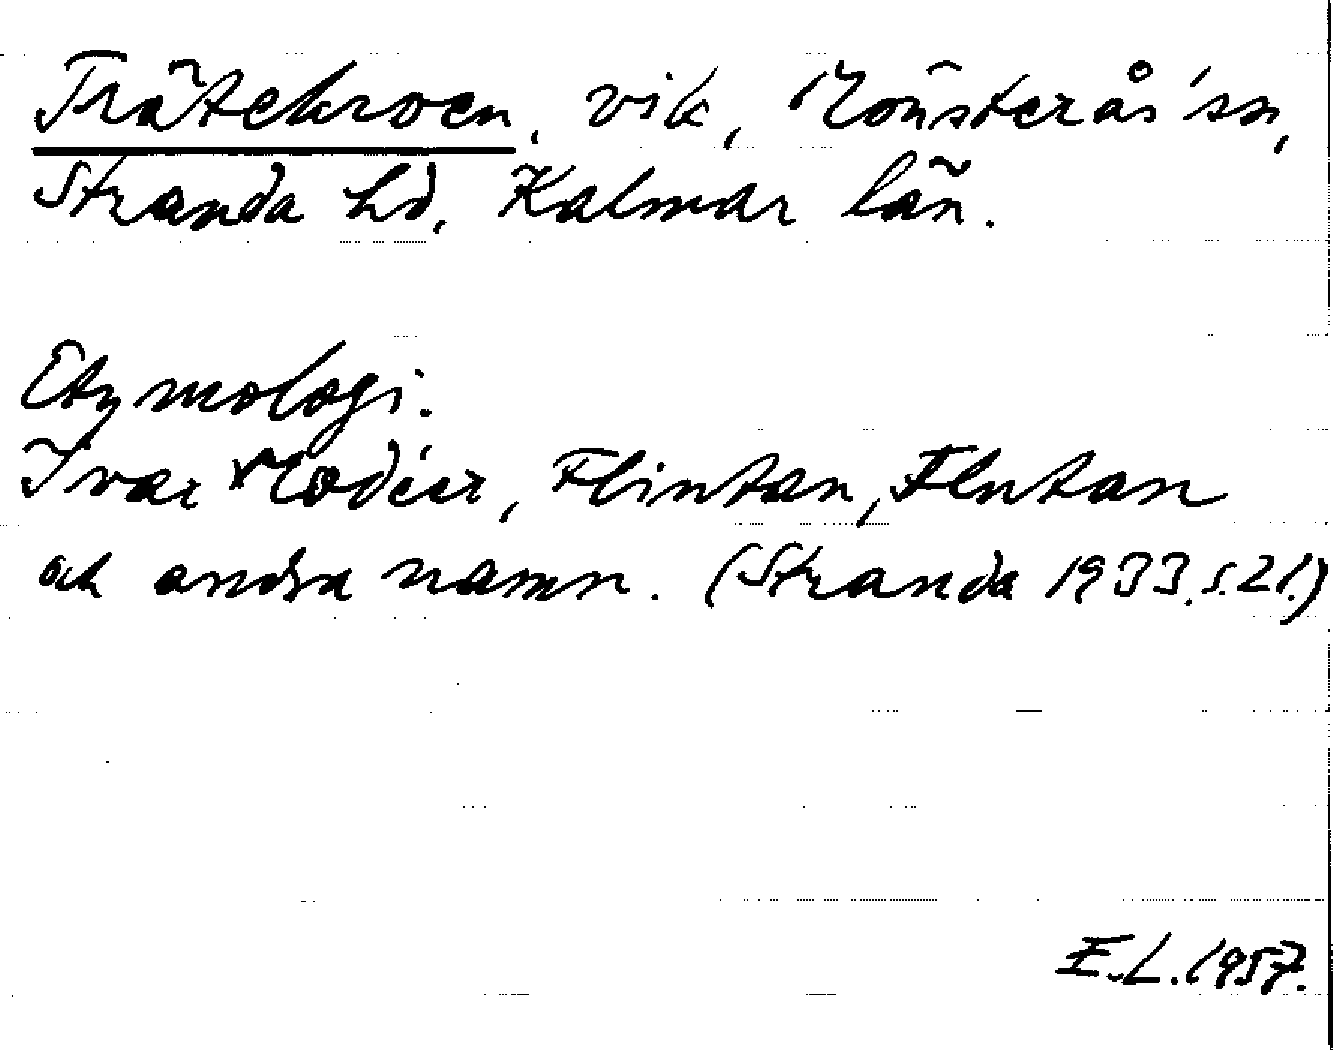 Trätekroen, vik, Mönsterås sn,
Stranda hd, Kalmar län.
Etymologi.
Ivar Modéer, Flintan, Flutan
och andra namn. (Stranda 1933.s.21.)
E.L.1957.